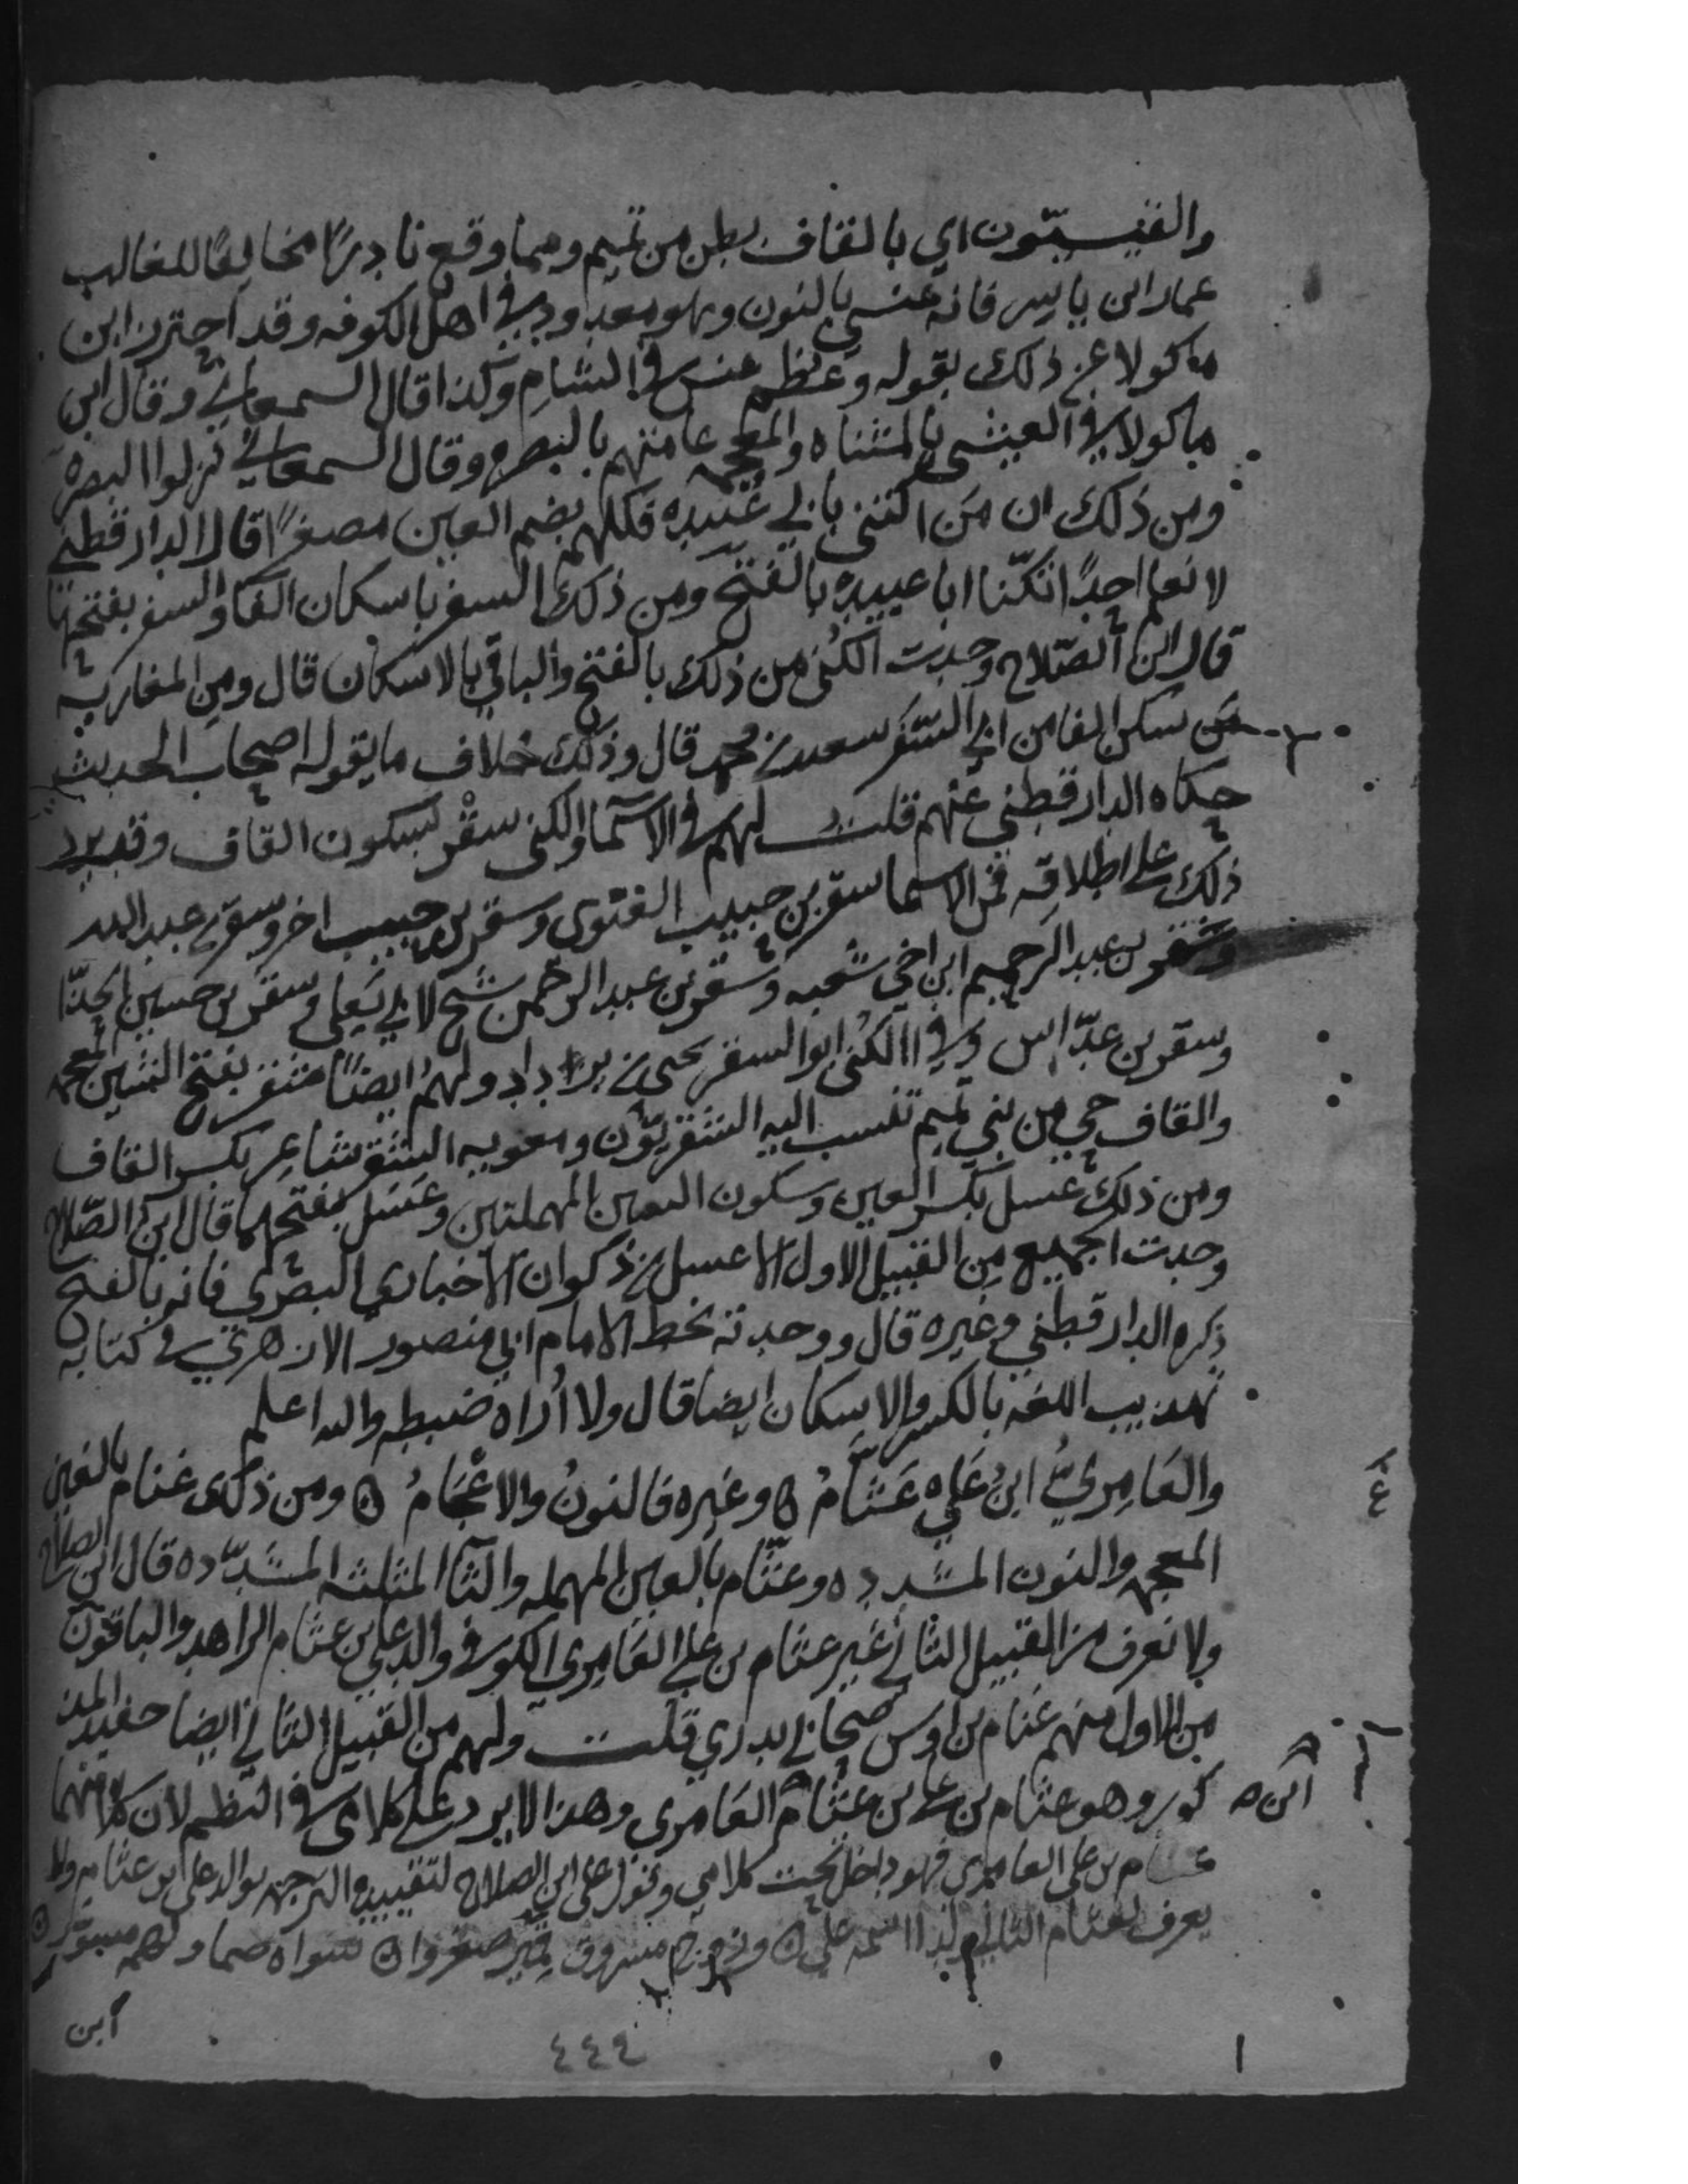 والقيسيّون اي بالقاف بطن من تميم ومما وقع نادرًا مخالفًا للغالب
عمار ابن ياسر فانه عنسي بالنون وهو معدود في اهل الكوفه وقد احترز ابن
ماكولا عن ذلك بقوله وعظم عنس في الشام وكذا قال السمعاني وقال ابن
ماكولا في العيشي بالمثناه والمعجمه عامتهم بالبصره وقال السمعاني نزلوا البصره
ومن ذلك ان من اكتنى بابي عُبيده فكلهم بضم العين مصغرًا قال الدارقطني
لا نعلم احدًا تكنّا ابا عبيده بالفتح ومن ذلك السفر باسكان الفا والسفر بفتحها
قال ابن الصّلاح وجدت الكُنى من ذلك بالفتح والباقي بالاسكان قال ومن المغاربه
من سكن الفا من ابي السّفر سعيد بن محمد قال وذلك خلاف ما يقوله اصحاب الحديث
حكاه الدارقطني عنهم قلت لهم في الاسما والكنى سقْر بسكون القاف وقد يرد
ذلك على اطلاقه فمن الاسما سقر بن حبيب الغنوي وسقر بن حبيب اخر وسقر بن عبد الله
وسقر بن عبد الرحيم ابن اخي شعبه وسقر بن عبد الرحمن شيخ لابي يَعلى وسقر بن حسين الحذّا
وسقر بن عدّاس وفي الكُنى ابو السقر يحيى بن يزداد ولهم ايضًا شقر بفتح الشين المعجمه
والقاف حي من بني تميم تنسب اليه الشقريّون ومعويه الشقر شاعر بكسر القاف
ومن ذلك عسل بكسر العين وسكون السين المهملتين وعَسَل بفتحهما قال ابن الصّلاح
وجدت الجميع من القبيل الاول الا عسل بن ذكوان الاخباري البصري فانه بالفتح
ذكره الدارقطني وغيره قال ووجدته بخط الامام ابي منصور الازهري في كتابه
تهذيب اللغه بالكسر والاسكان ايضا قال ولا اُراه ضبطه والله اعلم
والعَامِريُّ ابنُ عَلِي عَثَّامُ ۞ وغيره فالنونُ والاعْجَامُ ۞ ومن ذلك غنام بالغين
المعجمه والنون المشدده وعثّام بالعين المهمله والثا المثلثه المشدّده قال ابن الصلاح
ولا نعرف من القبيل الثاني غير عثام بن علي العَامِري الكوفي والد علي بن عثام الزاهد والباقون
من الاول منهم غنام بن اوس صحابي بدري قلت ولهم من القبيل الثاني ايضا حفيد المذ
كور وهو عثام بن علي بن عثام العَامري وهذا لا يرد على كلامي في النظم لان كلا منهما
عثام بن علي العامري فهو داخل تحت كلامي ونزل على ابن الصلاح لتقييده الترجمه بوالد علي ابن عثام ولا
يعرف لعثام الثاني ولد اسمه علي ۞ وزوج مسروق قمير صغروا ۞ سواه ضما ولهم مسوّر ۞
ابن
٤٤٤